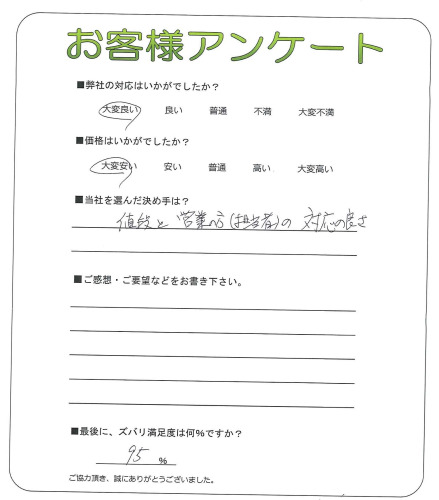 お客様アンケート
■弊社の対応はいかがでしたか?
大変良い 良い 普通 不満 大変不満
■価格はいかがでしたか?
大変安い 安い 普通 高い 大変高い
■当社を選んだ決め手は?
値段と営業(担当者)の対応の良さ
■ご感想・ご要望などをお書き下さい。
■最後に、ズバリ満足度は何%ですか?
95 %
ご協力頂き、誠にありがとうございました。